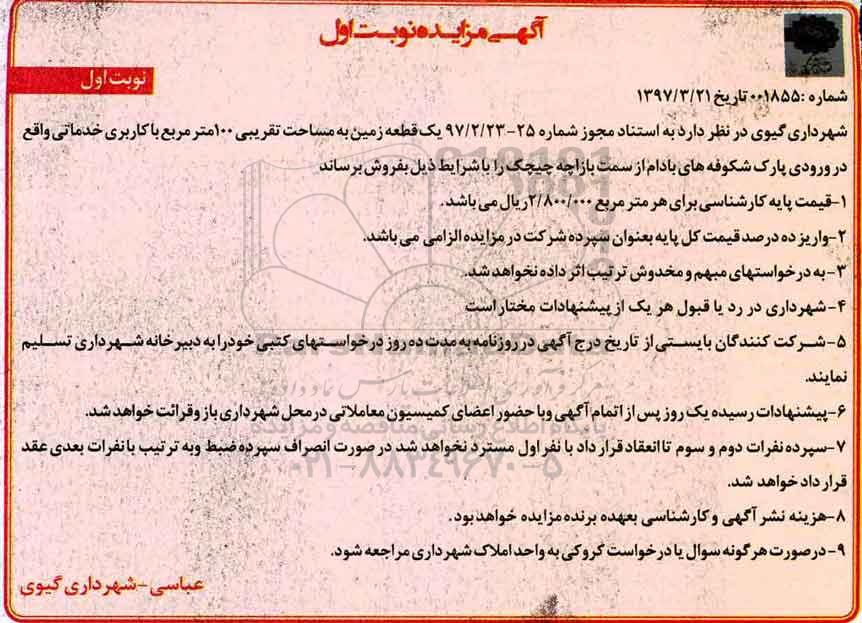 آگهی مزایده نوبت اول
نوبت اول
شماره :۰۰۱۸۵۵ تاریخ ۱۳۹۷/۳/۲۱
شهرداری گیوی در نظر دارد به استناد مجوز شماره ۲۵-۹۷/۲/۲۳ یک قطعه زمین به مساحت تقریبی ۱۰۰متر مربع با کاربری خدماتی واقع
در ورودی پارک شکوفه های بادام از سمت بازاچه چیچک را با شرایط ذیل بفروش برساند
۱-قیمت پایه کارشناسی برای هر متر مربع ۲/۸۰۰/۰۰۰ریال می باشد.
۲-واریز ده درصد قیمت کل پایه بعنوان سپرده شرکت در مزایده الزامی می باشد.
۳-به درخواستهای مبهم و مخدوش ترتیب اثر داده نخواهد شد.
۴-شهرداری در رد یا قبول هر یک از پیشنهادات مختار است
۵-شرکت کنندگان بایستی از تاریخ درج آگهی در روزنامه به مدت ده روز درخواستهای کتبی خود را به دبیرخانه شهرداری تسلیم
نمایند.
۶-پیشنهادات رسیده یک روز پس از اتمام آگهی وبا حضور اعضای کمیسیون معاملاتی درمحل شهرداری باز وقرائت خواهد شد.
۷-سپرده نفرات دوم و سوم تا انعقاد قرار داد با نفر اول مسترد نخواهد شد در صورت انصراف سپرده ضبط وبه ترتیب با نفرات بعدی عقد
قرار داد خواهد شد.
۸-هزینه نشر آگهی و کارشناسی بعهده برنده مزایده خواهد بود.
۹-درصورت هرگونه سوال یا درخواست کروکی به واحد املاک شهرداری مراجعه شود.
عباسی-شهرداری گیوی
پایگاه اطلاع رسانی مناقصه و مزایده
۰۲۱-۸۸۳۴۹۶۷۰-۵